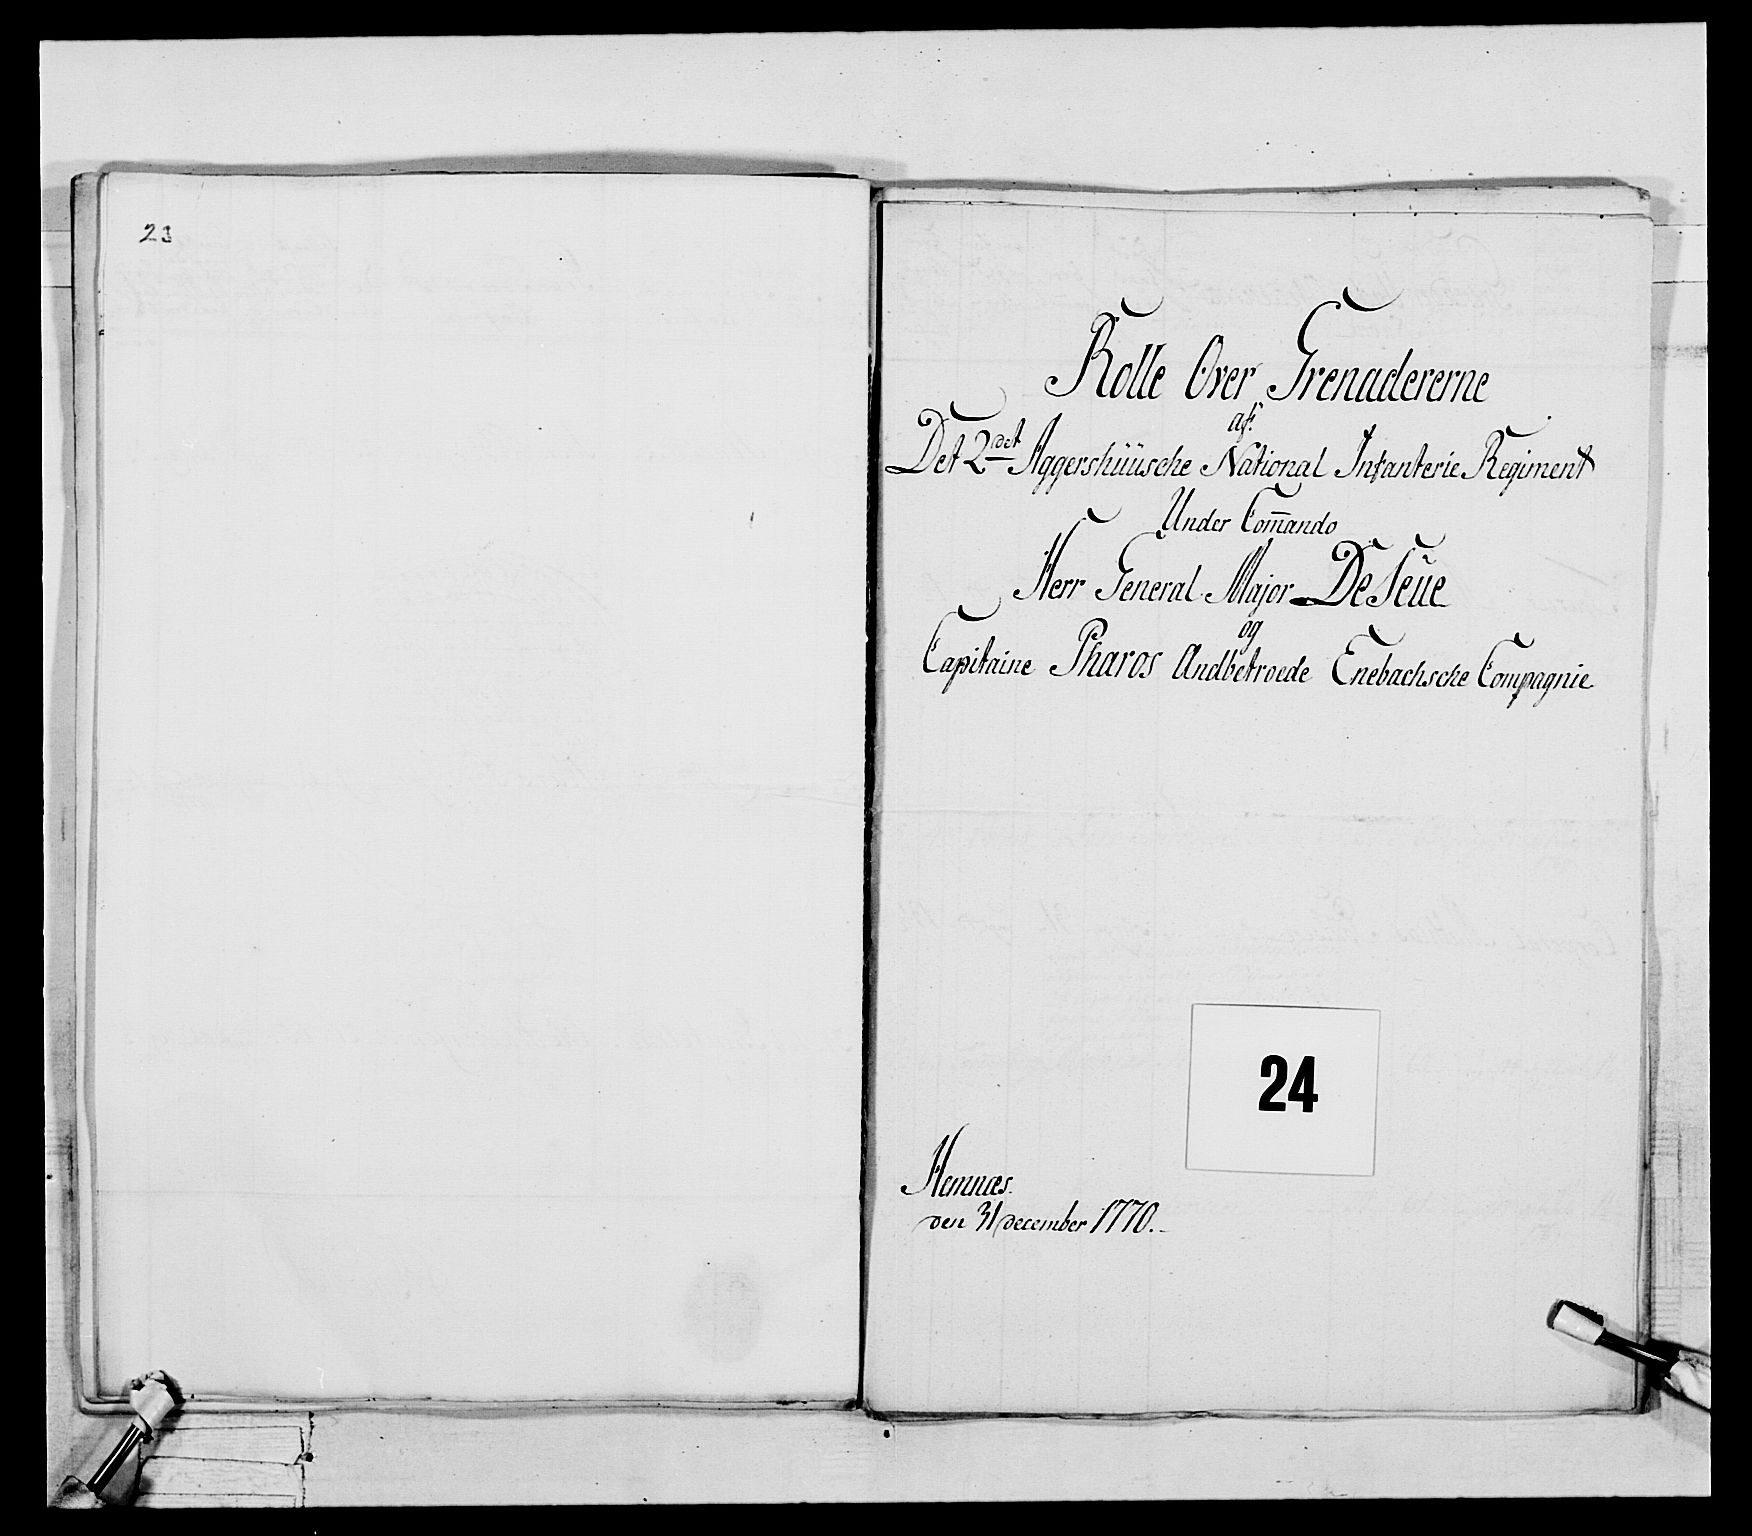 23
Rolle Over Grenadererne
af
Det 2det Aggershüüsche National Infanterie Regiment
Under Com̄ando
Herr General Major De Seüe
og
Capitaine Pharos Andbetroede Enebachsche Compagnie
24
Hemnæs.
den 31 december 1770.